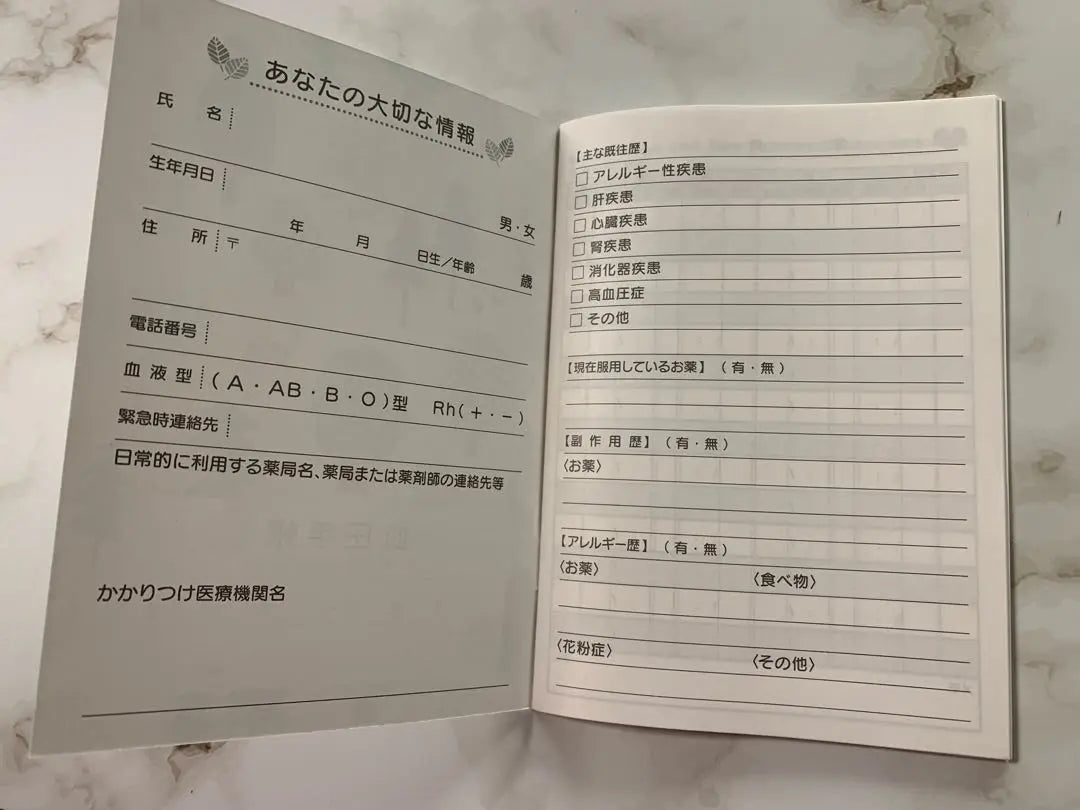 あなたの大切な情報
氏 名
生年月日
男・女
年 月 日生/年齢 歳
住 所 〒
電話番号
血液型 (A・AB・B・O)型 Rh(+・−)
緊急時連絡先
日常的に利用する薬局名、薬局または薬剤師の連絡先等
かかりつけ医療機関名
【主な既往歴】
□アレルギー性疾患
□肝疾患
□心臓疾患
□腎疾患
□消化器疾患
□高血圧症
□その他
【現在服用しているお薬】(有・無)
【副作用歴】(有・無)
〈お薬〉
【アレルギー歴】(有・無)
〈お薬〉 〈食べ物〉
〈花粉症〉 〈その他〉